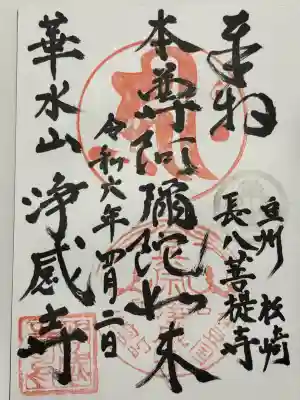 奉拝
豆州 松崎
長八菩提寺
本尊阿弥陀如来
令和六年四月二日
華水山 浄感寺